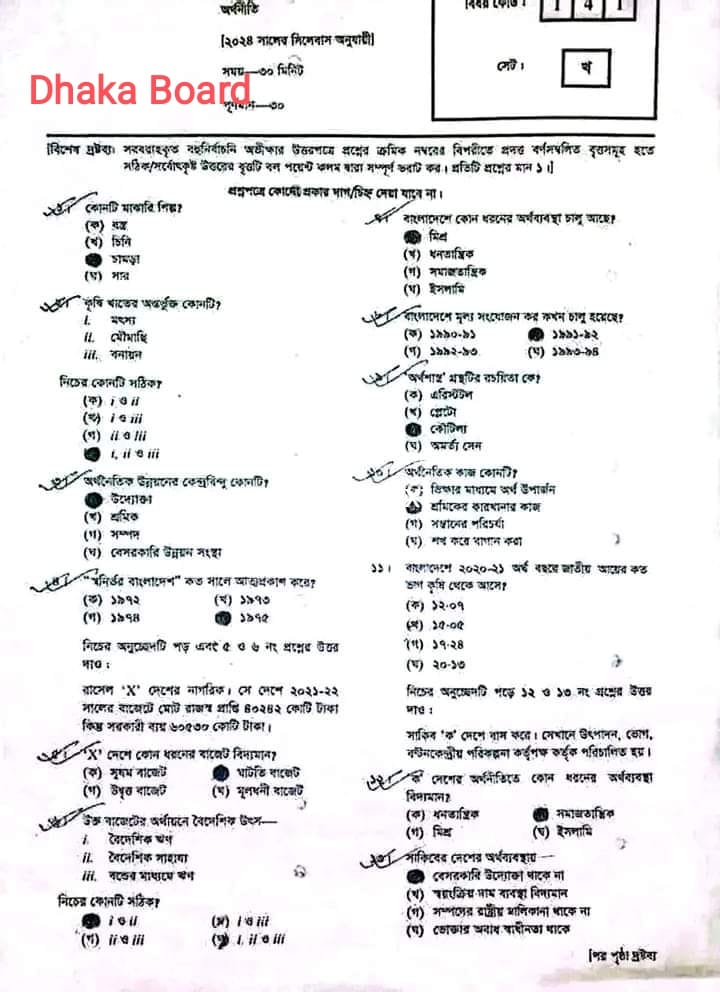 অর্থনীতি
[২০২৪ সালের সিলেবাস অনুযায়ী]
সময়—৩০ মিনিট
পূর্ণমান—৩০
Dhaka Board
বিষয় কোড : 1 4 1
সেট : খ
[বিশেষ দ্রষ্টব্য: সরবরাহকৃত বহুনির্বাচনি অভীক্ষার উত্তরপত্রে প্রশ্নের ক্রমিক নম্বরের বিপরীতে প্রদত্ত বর্ণসম্বলিত বৃত্তসমূহ হতে
সঠিক/সর্বোৎকৃষ্ট উত্তরের বৃত্তটি বল পয়েন্ট কলম দ্বারা সম্পূর্ণ ভরাট কর। প্রতিটি প্রশ্নের মান ১।]
প্রশ্নপত্রে কোনো প্রকার দাগ/চিহ্ন দেয়া যাবে না।
কোনটি মাঝারি শিল্প?
(ক) বস্ত্র
(খ) চিনি
চামড়া
(ঘ) সার
কৃষি খাতের অন্তর্ভুক্ত কোনটি?
i. মৎস্য
ii. মৌমাছি
iii. বনায়ন
নিচের কোনটি সঠিক?
(ক) i ও ii
(খ) i ও iii
(গ) ii ও iii
i, ii ও iii
৩। অর্থনৈতিক উন্নয়নের কেন্দ্রবিন্দু কোনটি?
উদ্যোক্তা
(খ) শ্রমিক
(গ) সম্পদ
(ঘ) বেসরকারি উন্নয়ন সংস্থা
৪। "স্বনির্ভর বাংলাদেশ" কত সালে আত্মপ্রকাশ করে?
(ক) ১৯৭২ (খ) ১৯৭৩
(গ) ১৯৭৪ ১৯৭৫
নিচের অনুচ্ছেদটি পড় এবং ৫ ও ৬ নং প্রশ্নের উত্তর
দাও :
রাসেল 'X' দেশের নাগরিক। সে দেশে ২০২১-২২
সালের বাজেটে মোট রাজস্ব প্রাপ্তি ৪০২৪২ কোটি টাকা
কিন্তু সরকারী ব্যয় ৬০৫৩০ কোটি টাকা।
৫। 'X' দেশে কোন ধরনের বাজেট বিদ্যমান?
(ক) সুষম বাজেট ঘাটতি বাজেট
(গ) উদ্বৃত্ত বাজেট (ঘ) মূলধনী বাজেট
উক্ত বাজেটের অর্থায়নে বৈদেশিক উৎস—
i. বৈদেশিক ঋণ
ii. বৈদেশিক সাহায্য
iii. বন্ডের মাধ্যমে ঋণ
নিচের কোনটি সঠিক?
i ও ii (খ) i ও iii
(গ) ii ও iii (ঘ) i, ii ও iii
৭। বাংলাদেশে কোন ধরনের অর্থব্যবস্থা চালু আছে?
মিশ্র
(খ) ধনতান্ত্রিক
(গ) সমাজতান্ত্রিক
(ঘ) ইসলামি
৮। বাংলাদেশে মূল্য সংযোজন কর কখন চালু হয়েছে?
(ক) ১৯৯০-৯১ ১৯৯১-৯২
(গ) ১৯৯২-৯৩ (ঘ) ১৯৯৩-৯৪
৯। 'অর্থশাস্ত্র' গ্রন্থটির রচয়িতা কে?
(ক) এরিস্টটল
(খ) প্লেটো
কৌটিল্য
(ঘ) অমর্ত্য সেন
১০। অর্থনৈতিক কাজ কোনটি?
(ক) ভিক্ষার মাধ্যমে অর্থ উপার্জন
শ্রমিকের কারখানার কাজ
(গ) সন্তানের পরিচর্যা
(ঘ) শখ করে বাগান করা
১১। বাংলাদেশে ২০২০-২১ অর্থ বছরে জাতীয় আয়ের কত
ভাগ কৃষি থেকে আসে?
(ক) ১২.০৭
(খ) ১৫.০৫
(গ) ১৭.২৪
(ঘ) ২০.১৩
নিচের অনুচ্ছেদটি পড়ে ১২ ও ১৩ নং প্রশ্নের উত্তর
দাও :
সাকিব 'ক' দেশে বাস করে। সেখানে উৎপাদন, ভোগ,
বণ্টনকেন্দ্রীয় পরিকল্পনা কর্তৃপক্ষ কর্তৃক পরিচালিত হয়।
১২। 'ক' দেশের অর্থনীতিতে কোন ধরনের অর্থব্যবস্থা
বিদ্যমান?
(ক) ধনতান্ত্রিক সমাজতান্ত্রিক
(গ) মিশ্র (ঘ) ইসলামি
১৩। সাকিবের দেশের অর্থব্যবস্থায় —
বেসরকারি উদ্যোক্তা থাকে না
(খ) স্বয়ংক্রিয় দাম ব্যবস্থা বিদ্যমান
(গ) সম্পদের রাষ্ট্রীয় মালিকানা থাকে না
(ঘ) ভোক্তার অবাধ স্বাধীনতা থাকে
[পর পৃষ্ঠা দ্রষ্টব্য